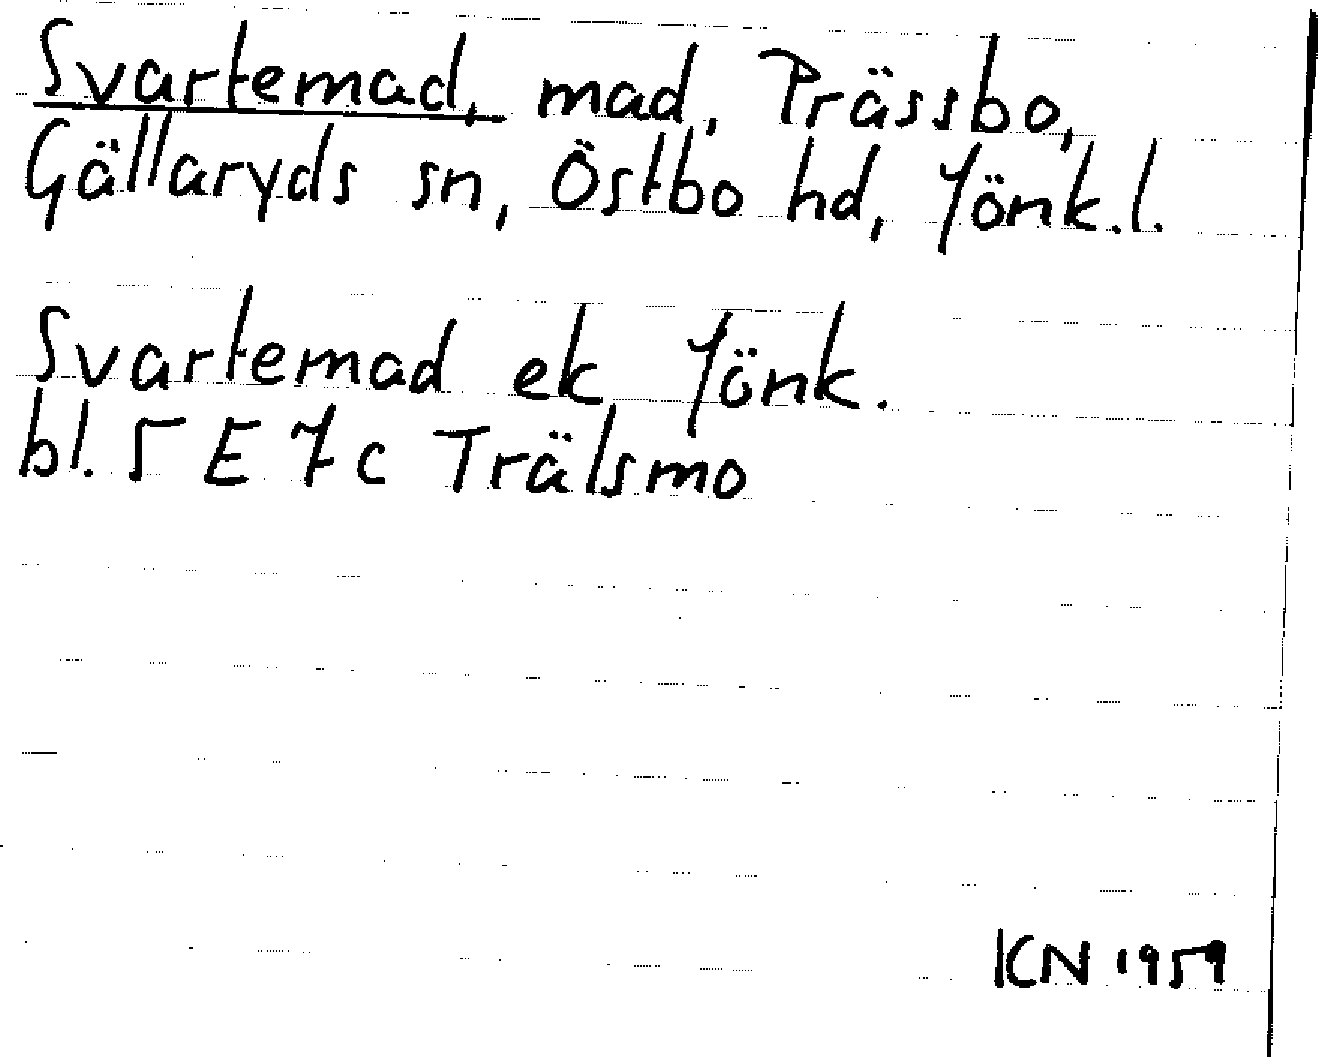 Svartemad, mad, Prässbo,
Gällaryds sn, Östbo hd, Jönk.l.
Svartemad ek Jönk.
bl. 5 E 7c Trälsmo
KN 1959